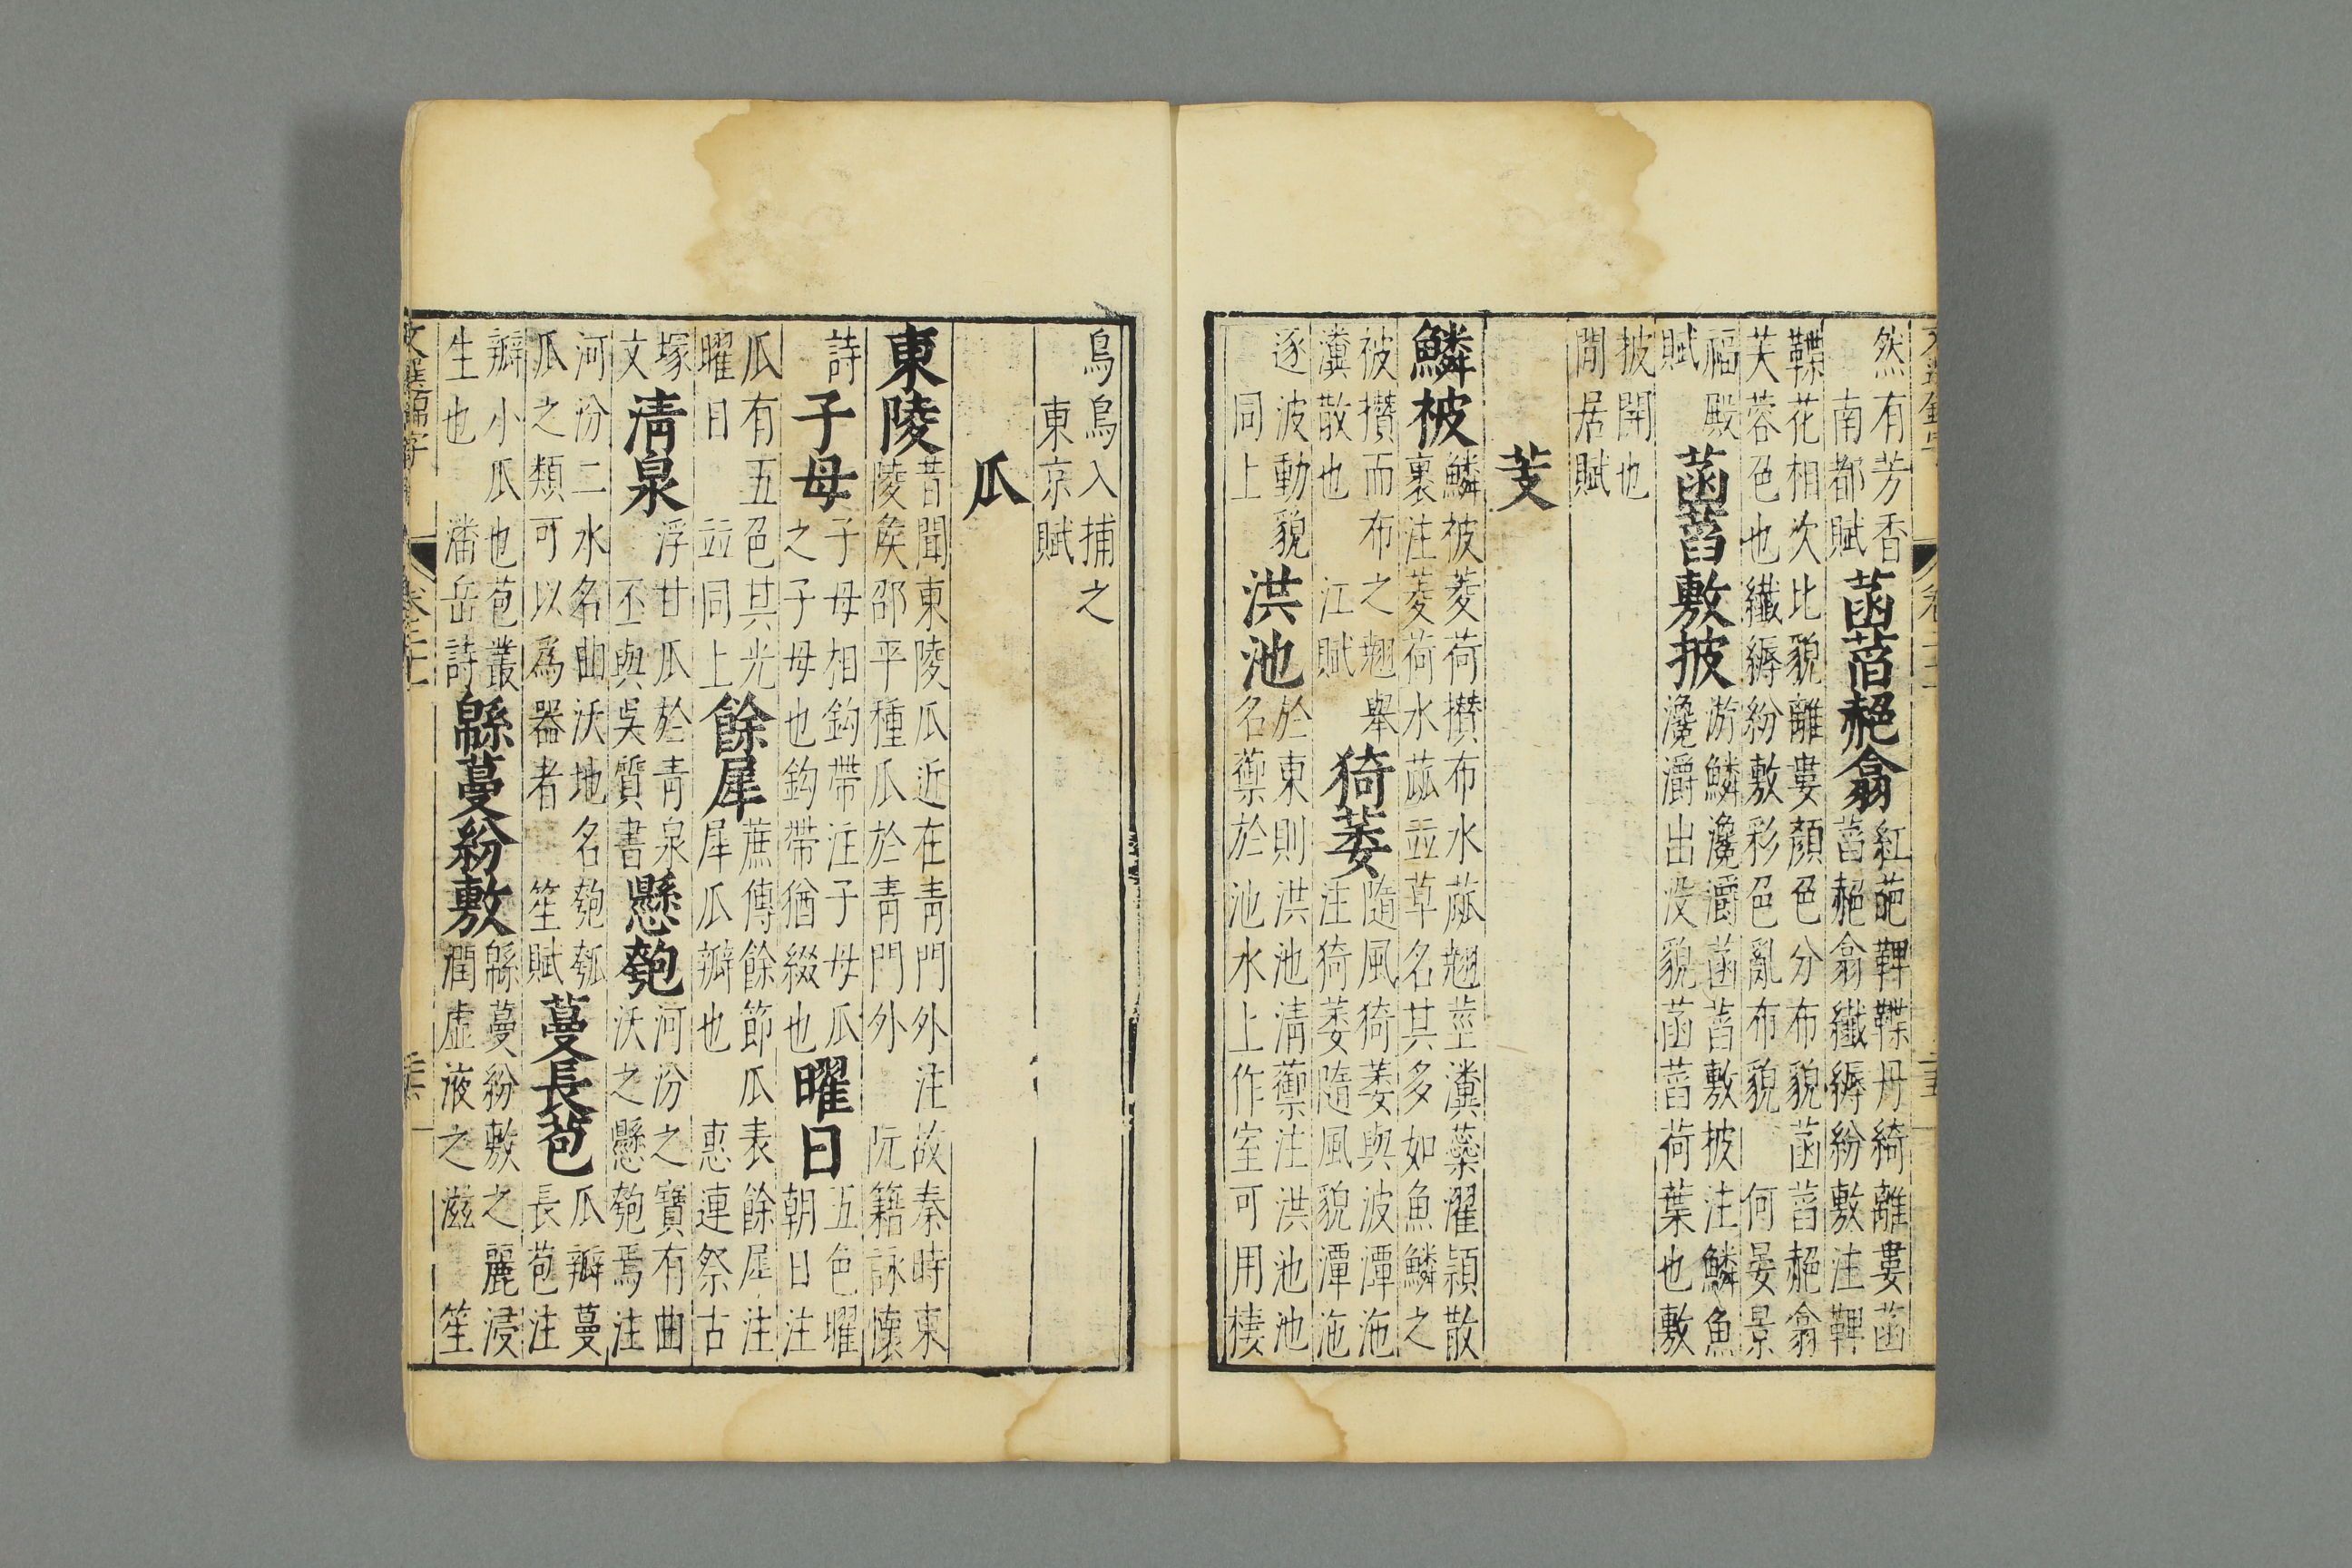 然有芳香
南都賦
菡萏赩翕
紅葩鞞鞢丹綺離婁菡
萏赩翕纖縟紛敷注鞞
鞢花相次比貌離婁顏色分布貌菡萏赩翕
芙蓉色也纖縟紛敷彩色亂布貌 何晏景
福殿
賦
菡萏敷披
游鱗瀺灂菡萏敷披注鱗魚
瀺灂出没貌菡萏荷葉也敷
披開也
閒居賦
芰
鱗被
鱗被菱荷攢布水蓏翹莖瀵蘂濯穎散
裹注菱荷水蓏並草名其多如魚鱗之
被攢而布之翹舉
瀵散也 江賦
猗萎
隨風猗萎與波潭沲
注猗萎隨風貌潭沲
逐波動貌
同上
洪池
於東則洪池清蘌注洪池池
名蘌於池水上作室可用棲
鳥鳥入捕之
東京賦
瓜
東陵
昔聞東陵瓜近在青門外注故秦時東
陵矦邵平種瓜於青門外 阮籍詠懷
詩
子母
子母相鈎帶注子母瓜
之子母也鈎帶猶綴也
曜日
五色曜
朝日注
瓜有五色其光
曜日 並同上
餘犀
蔗傳餘節瓜表餘犀注
犀瓜瓣也 惠連祭古
塚
文
清泉
浮甘瓜於青泉
丕與吳質書
懸匏
河汾之寶有曲
沃之懸匏焉注
河汾二水名曲沃地名匏瓠
瓜之類可以爲器者 笙賦
蔓長苞
瓜瓣蔓
長苞注
瓣小瓜也苞叢
生也 潘岳詩
緜蔓紛敷
緜蔓紛敷之麗浸
潤虛液之滋 笙